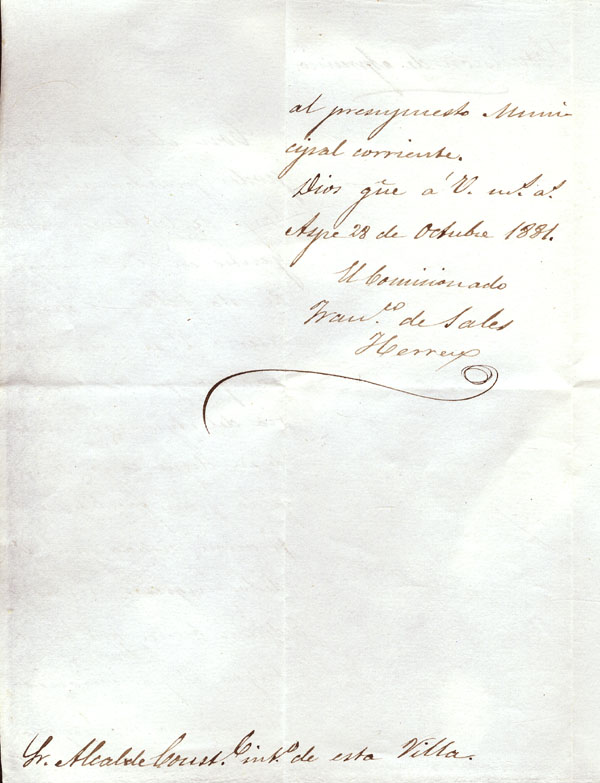 al presupuesto Muni-
cipal corriente.
Dios gūe á V. m.s a.s
Aspe 28 de Octubre 1881.
El Comisionado
Fran.co de Sales
Sr. Alcalde Const.l int.o de esta Villa.